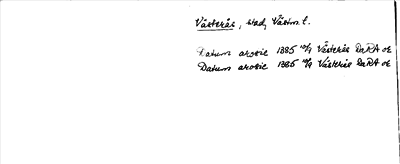 Västerås, stad, Västm. l.
Datum arosie 1385 10/9 Västerås DaRA oe
Datum arosie 1385 10/9 Västerås DaRA oe